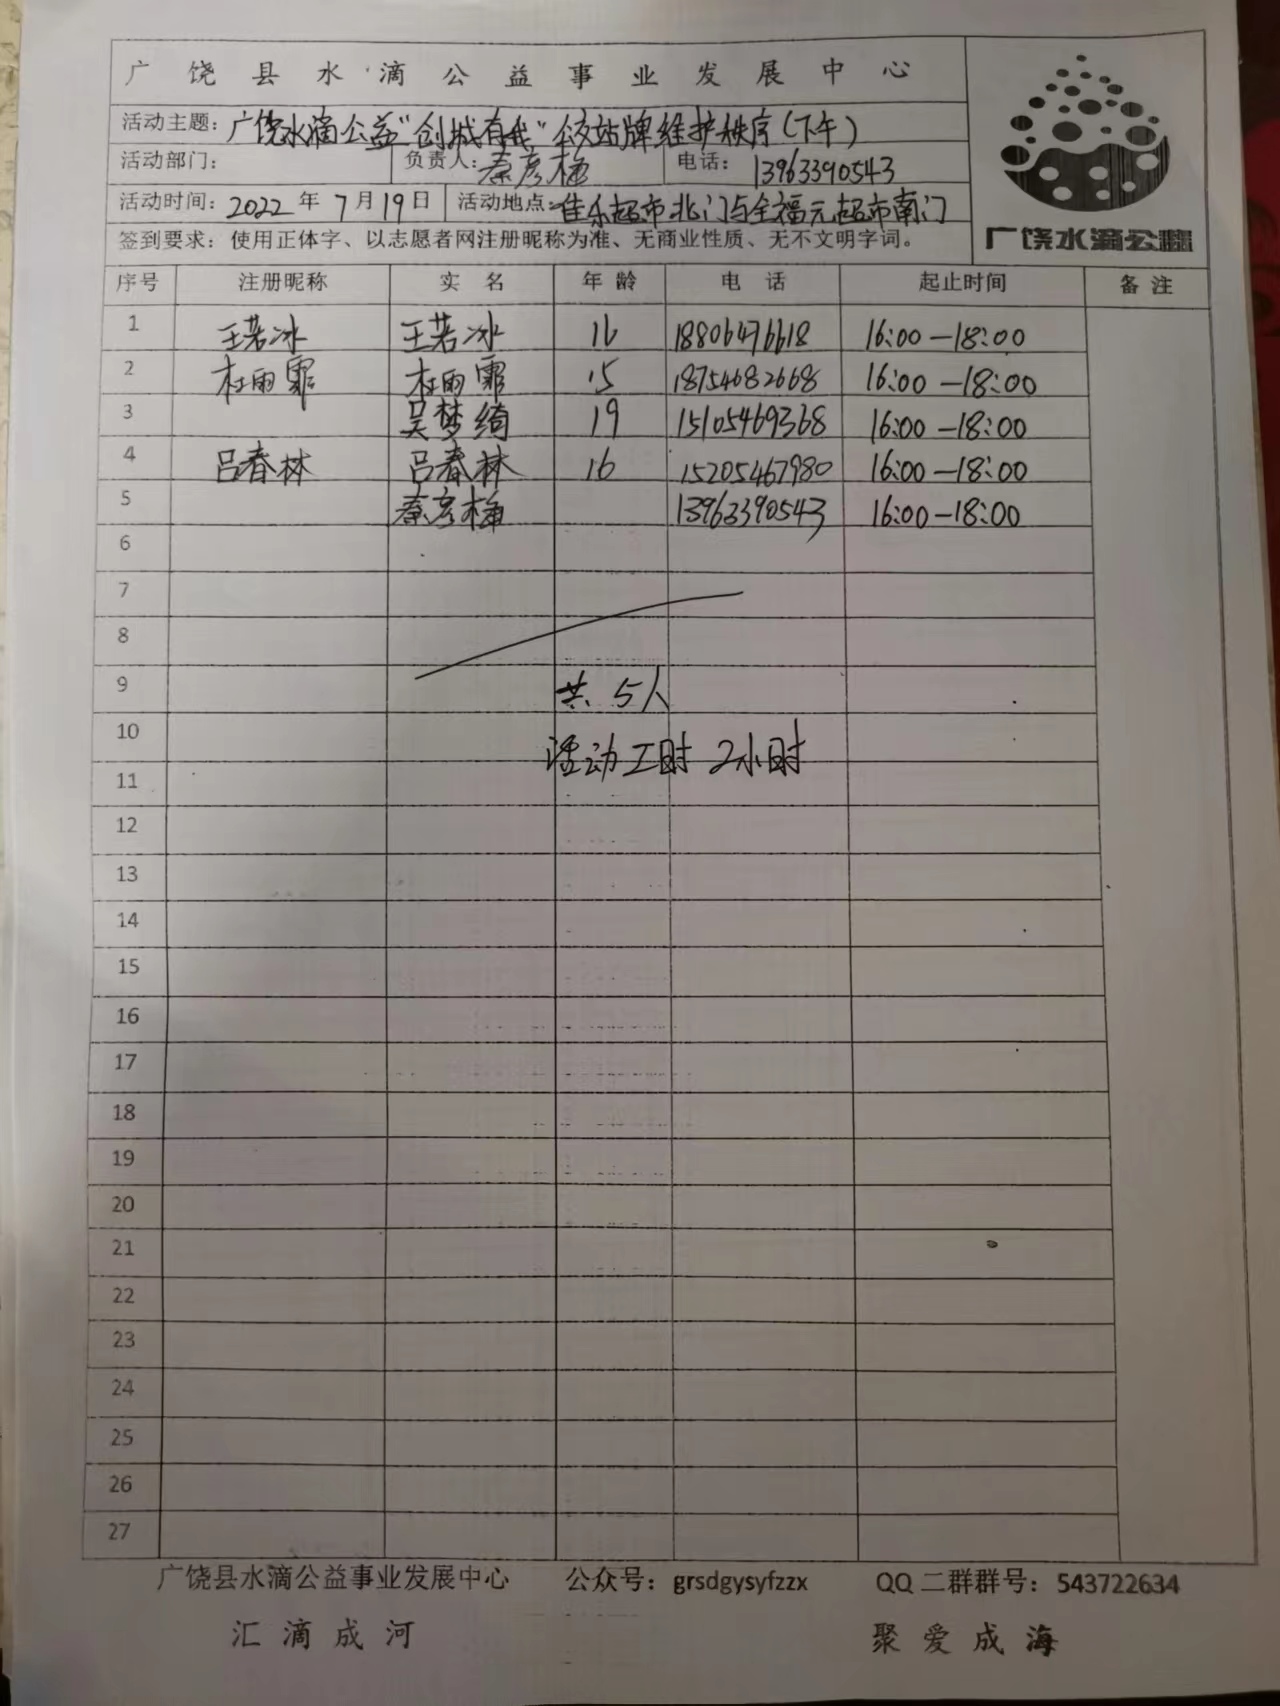 广饶县水滴公益事业发展中心
活动主题：广饶水滴公益"创城有我"公交站牌维护秩序(下午)
活动部门： 负责人：秦彦梅 电话：13963390543
活动时间：2022年7月19日 活动地点：佳乐超市北门与全福元超市南门
签到要求：使用正体字、以志愿者网注册昵称为准、无商业性质、无不文明字词。
广饶水滴公益
序号 注册昵称 实名 年龄 电话 起止时间 备注
1 王若冰 王若冰 16 18806476618 16:00-18:00
2 杜雨霏 杜雨霏 15 18754682668 16:00-18:00
3 吴梦绮 19 15105469368 16:00-18:00
4 吕春林 吕春林 16 15205467980 16:00-18:00
5 秦彦梅 13963390543 16:00-18:00
6
7
8
9 共5人
10
活动工时 2小时
11
12
13
14
15
16
17
18
19
20
21
22
23
24
25
26
27
广饶县水滴公益事业发展中心 公众号：grsdgysyfzzx QQ二群群号：543722634
汇滴成河 聚爱成海